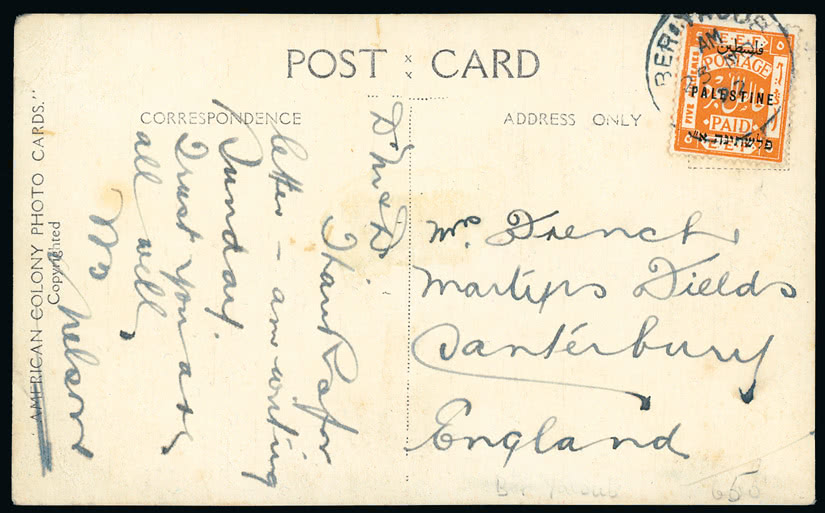 POST CARD
CORRESPONDENCE
ADDRESS ONLY
"AMERICAN COLONY PHOTO CARDS."
Copyrighted
Thanks for
letter – am writing
Sunday.
Trust you are
all well,
Nelson
Mrs. French
Martyrs Fields
Canterbury
England
AM
E.E.F.
فلسطين
POSTAGE
PALESTINE
PAID
FIVE
פלשתינה א״י
E.E.F.
650